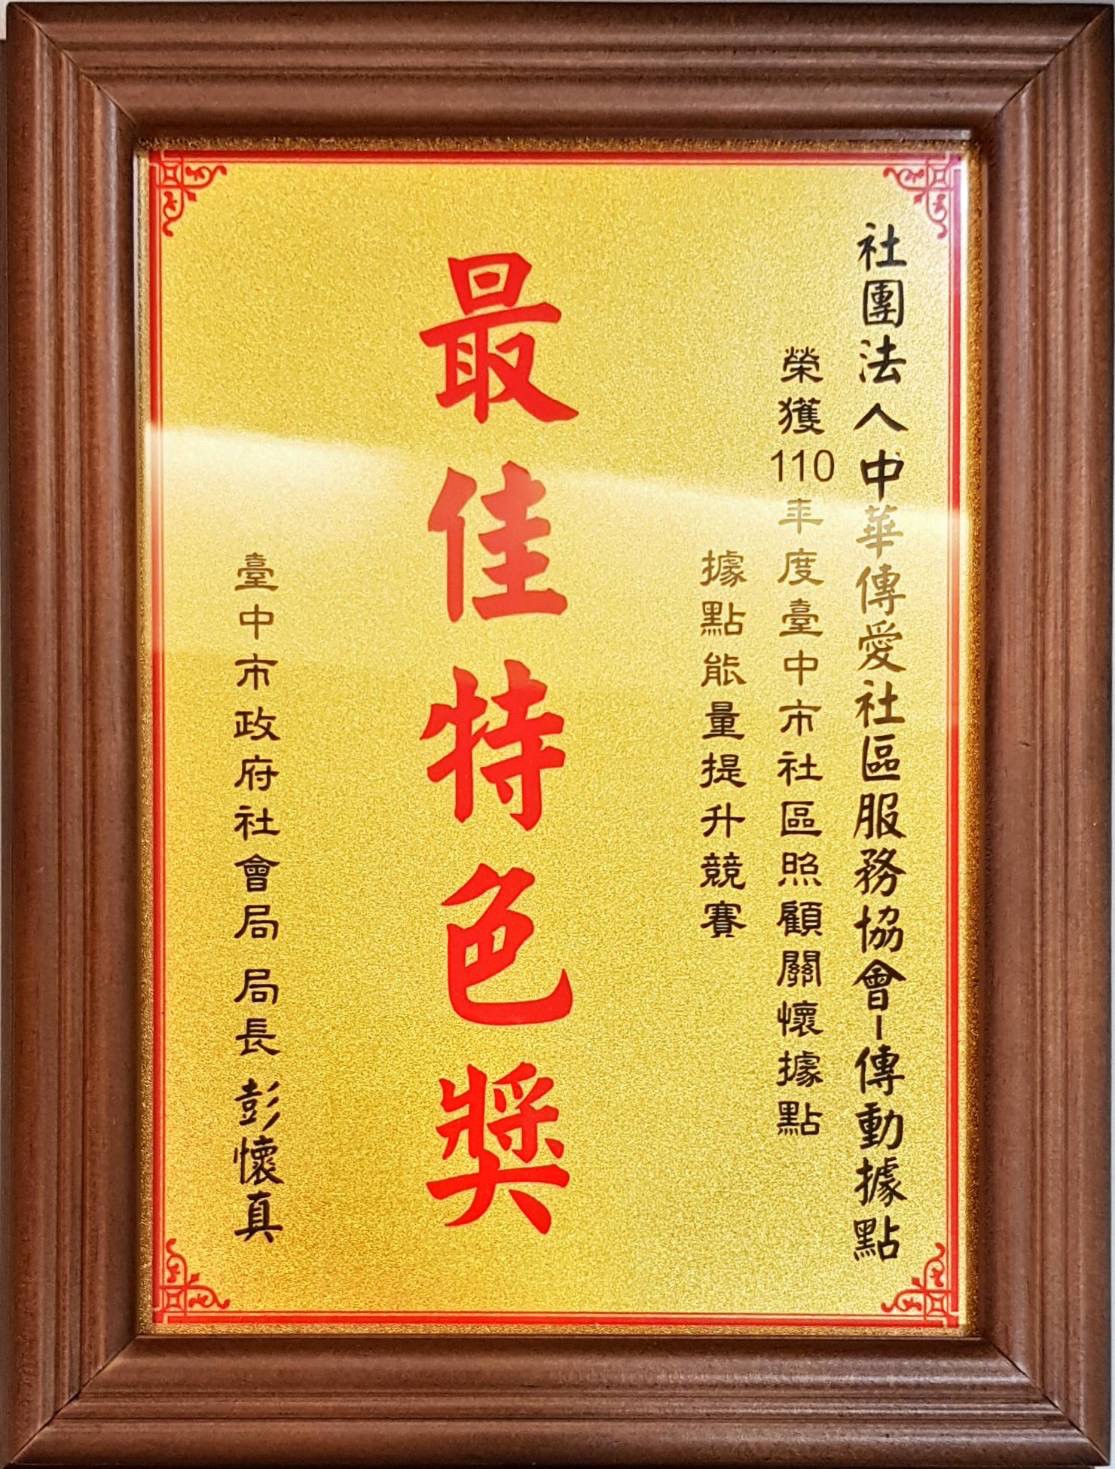 社團法人中華傳愛社區服務協會-傳動據點
榮獲110年度臺中市社區照顧關懷據點
據點能量提升競賽
最佳特色獎
臺中市政府社會局 局長 彭懷真